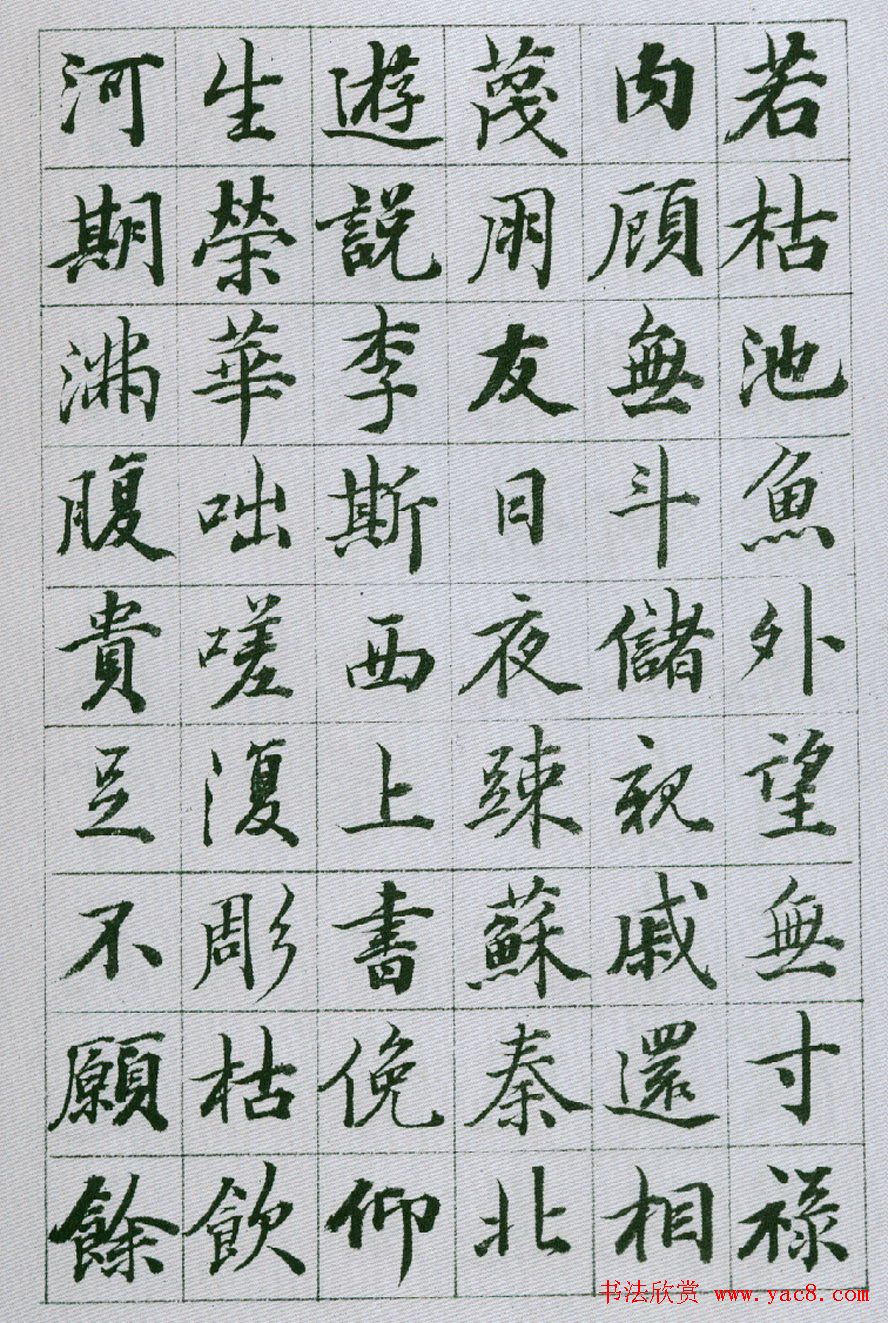 若枯池魚外望無寸祿
内顧無斗儲親戚還相
蔑朋友日夜踈蘇秦北
遊説李斯西上書俛仰
生榮華咄嗟復彫枯飲
河期滿腹貴足不願餘
书法欣赏 www.yac8.com